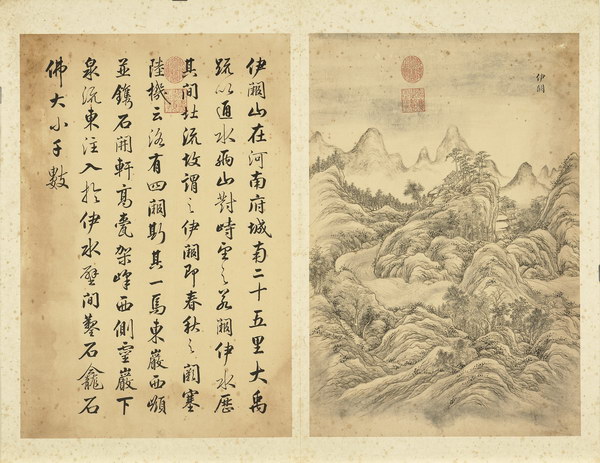 伊闕
伊闕山在河南府城南二十五里大禹
疏以通水兩山對峙望之若闕伊水歷
其間北流故謂之伊闕即春秋之闕塞
陸機云洛有四闕斯其一焉東巖西嶺
並鐫石開軒高甍架峰西側靈巖下
泉流東注入於伊水壁間鑿石龕石
佛大小千數